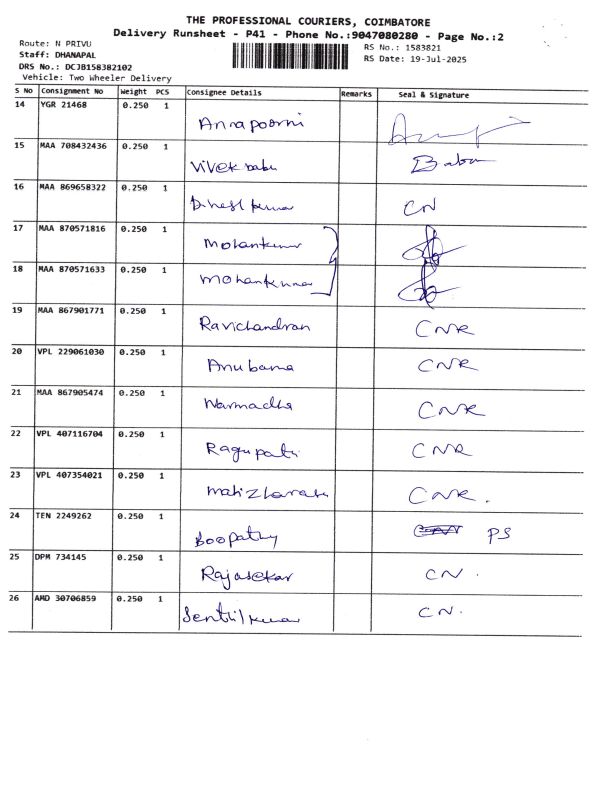 THE PROFESSIONAL COURIERS, COIMBATORE
Delivery Runsheet - P41 - Phone No.:9047080280 - Page No.:2
Route: N PRIVU
RS No.: 1583821
Staff: DHANAPAL
RS Date: 19-Jul-2025
DRS No.: DCJB158382102
Vehicle: Two Wheeler Delivery
S No Consignment No Weight PCS Consignee Details Remarks Seal & Signature
14 YGR 21468 0.250 1 Annapoorni
15 MAA 708432436 0.250 1 Vivek babu Babu
16 MAA 869658322 0.250 1 Dinesh kumar CN
17 MAA 870571816 0.250 1 Mohankumar
18 MAA 870571633 0.250 1 Mohankumar
19 MAA 867901771 0.250 1 Ravichandran CNR
20 VPL 229061030 0.250 1 Anubama CNR
21 MAA 867905474 0.250 1 Narmadha CNR
22 VPL 407116704 0.250 1 Ragupati CNR
23 VPL 407354021 0.250 1 CNR.
24 TEN 2249262 0.250 1 Boopathy PS
25 DPM 734145 0.250 1 Rajasekar CN.
26 AMD 30706859 0.250 1 Senthilkumar CN.